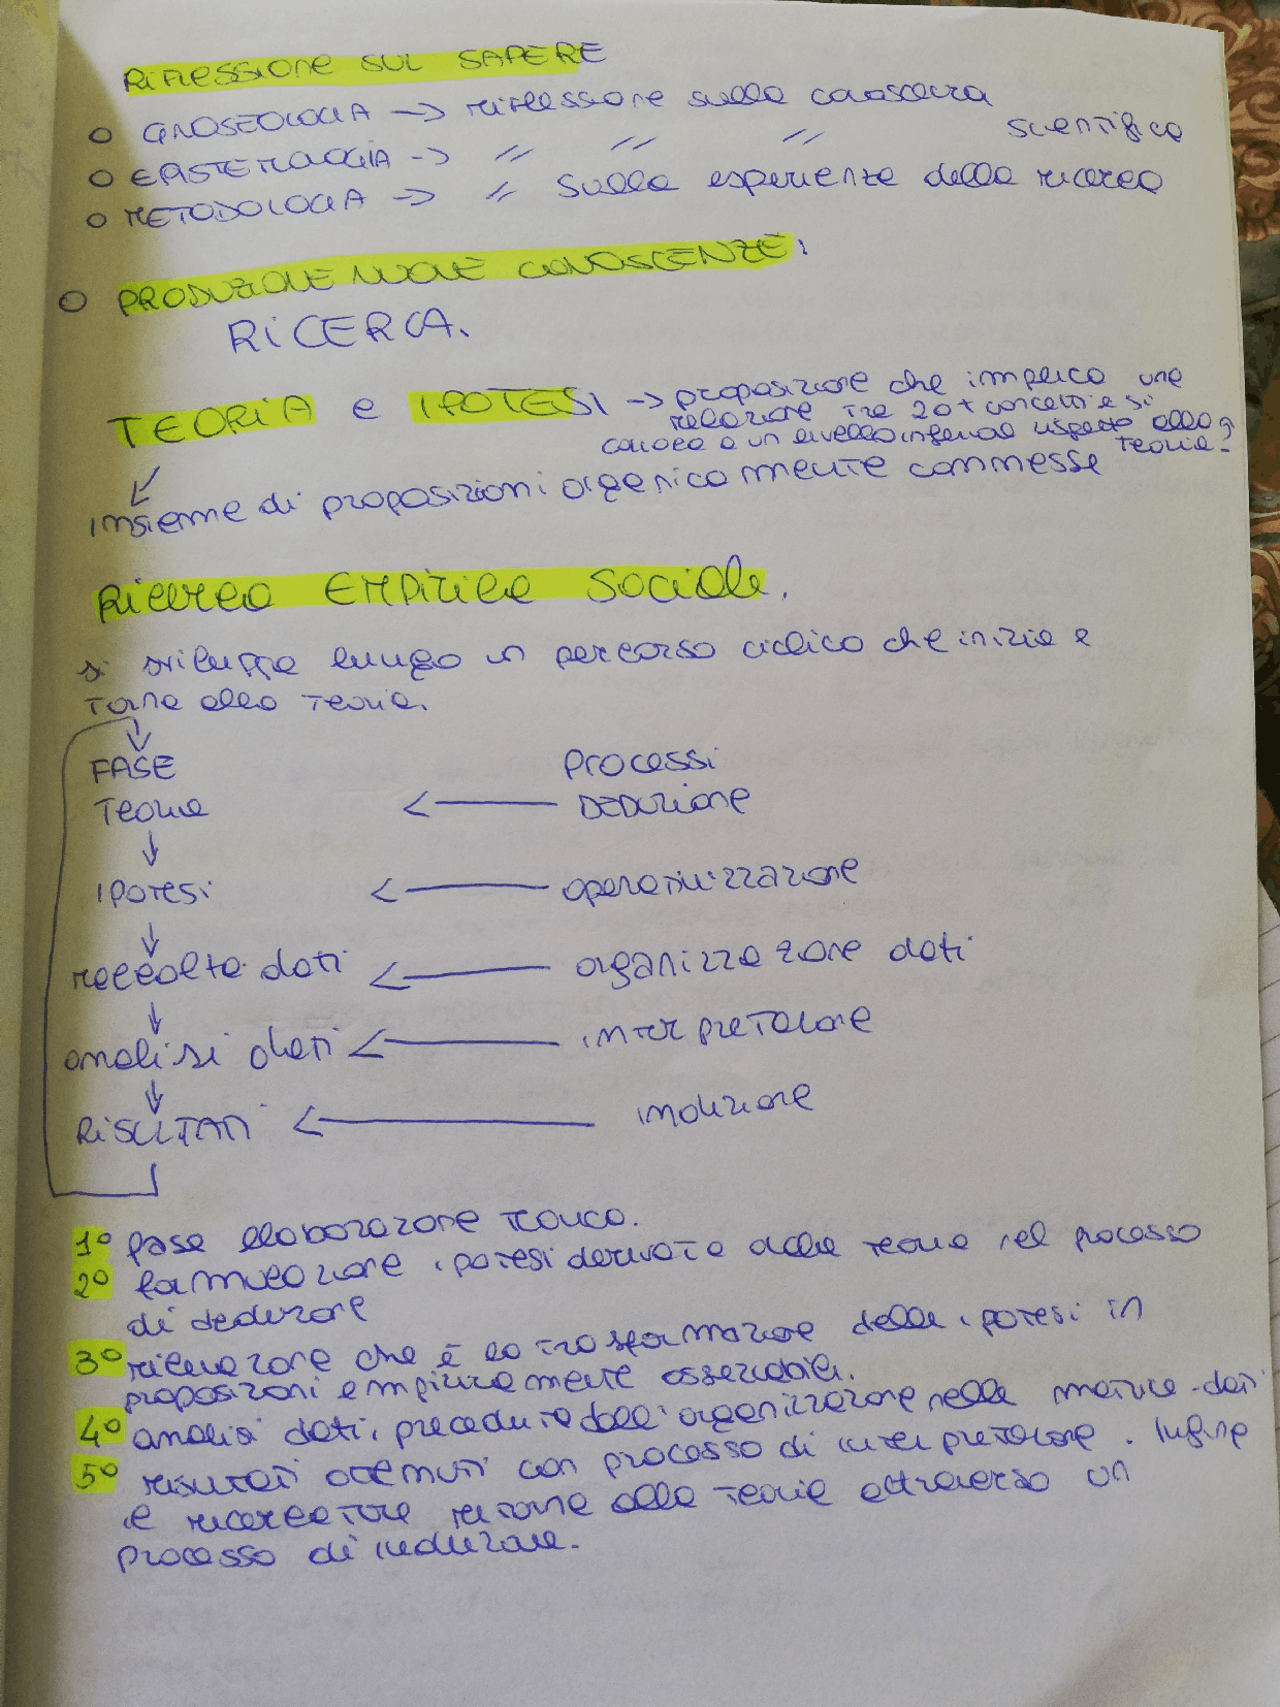 RIFLESSIONE SUL SAPERE
○ GNOSEOLOGIA → riflessione sulla conoscenza
○ EPISTEMOLOGIA → // // // scientifica
○ METODOLOGIA → // sulla esperienza della ricerca
○ PRODUZIONE NUOVE CONOSCENZE:
RICERCA.
TEORIA e IPOTESI → proposizione che implica una
relazione tra 2 o + concetti e si
colloca a un livello inferiore rispetto alla
teoria.
insieme di proposizioni organicamente connesse
Ricerca EMPIRICA Sociale.
si sviluppa lungo un percorso ciclico che inizia e
torna alla teoria.
FASE Processi
Teoria ← DEDUZIONE
↓
IPOTESI ← operativizzazione
↓
raccolta dati ← organizzazione dati
↓
analisi dati ← interpretazione
↓
RISULTATI ← induzione
1° fase elaborazione teorica.
2° formulazione ipotesi derivata dalla teoria nel processo
di deduzione
3° rilevazione che è la trasformazione delle ipotesi in
proposizioni empiricamente osservabili.
4° analisi dati, preceduta dall'organizzazione nella matrice-dati
5° risultati ottenuti con processo di interpretazione. Infine
il ricercatore ritorna alla teoria attraverso un
processo di induzione.